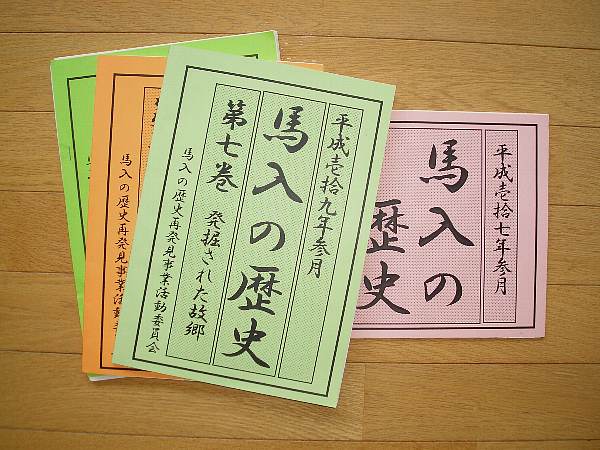 平成壱拾九年参月
馬入の歴史
第七巻 発掘された故郷
馬入の歴史再発見事業活動委員会
平成壱拾七年参月
馬入の
歴史
馬入の歴史再発見事業活動委